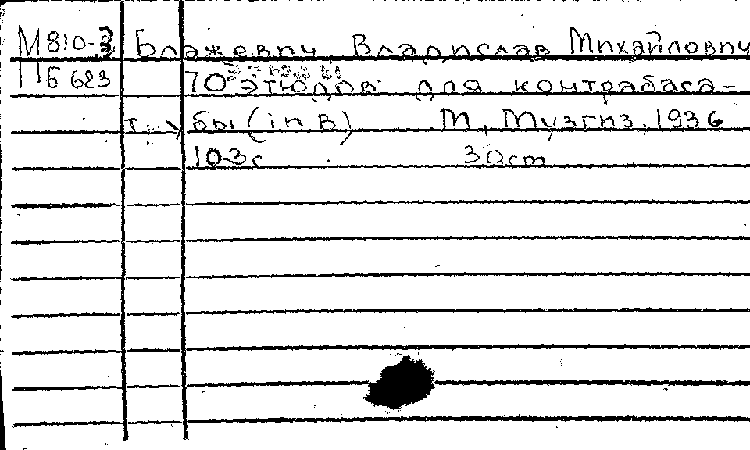 М810-3 Блажевич, Владислав Михайлович
Б 623 70 этюдов для контрабаса-
бы (in B) М, Музгиз, 1936
103с 30cm